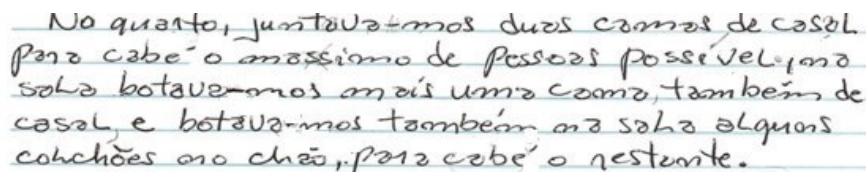 No quarto, juntava-mos duas camas de casal
para cabé o massimo de pessoas possível, na
sala botava-mos mais uma cama, também de
casal, e botava-mos também na sala alguns
colchões no chão, para cabé o restante.